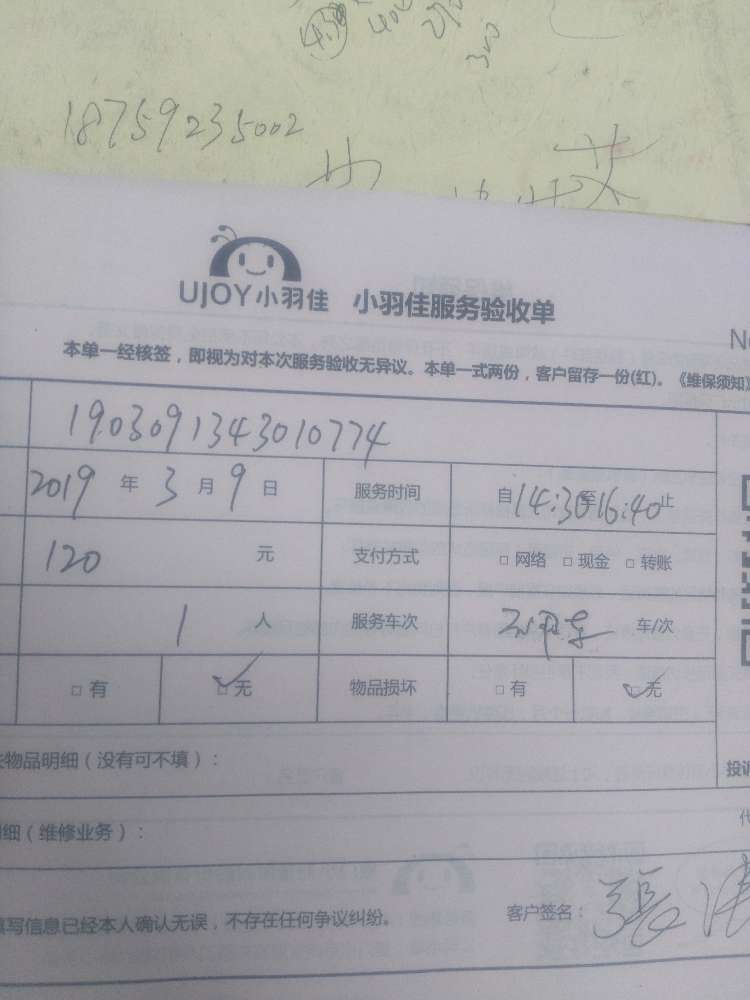 18759235002
UJOY小羽佳 小羽佳服务验收单
本单一经核签，即视为对本次服务验收无异议。本单一式两份，客户留存一份(红)。《维保须知》
1903091343010774
2019 年 3 月 9 日 服务时间 自14:30至16:40止
120 元 支付方式 □ 网络 □ 现金 □ 转账
1 人 服务车次 车/次
□ 有 ☑ 无 物品损坏 □ 有 ☑ 无
物品明细（没有可不填）：
投诉
细（维修业务）：
填写信息已经本人确认无误，不存在任何争议纠纷。 客户签名： 張